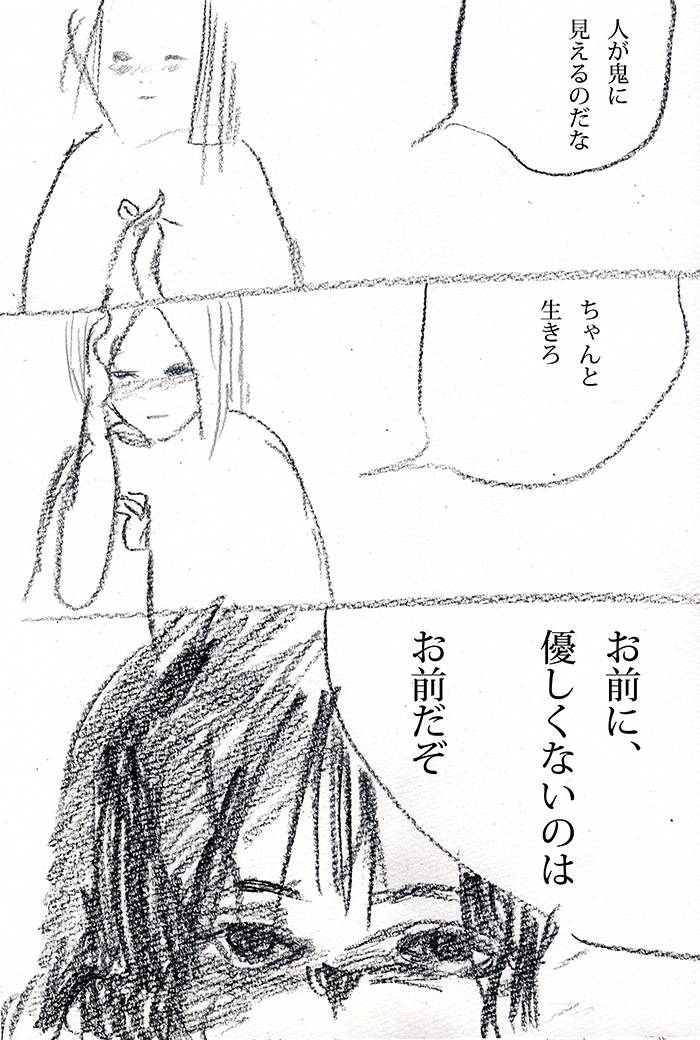 人が鬼に
見えるのだな
ちゃんと
生きろ
お前に、
優しくないのは
お前だぞ